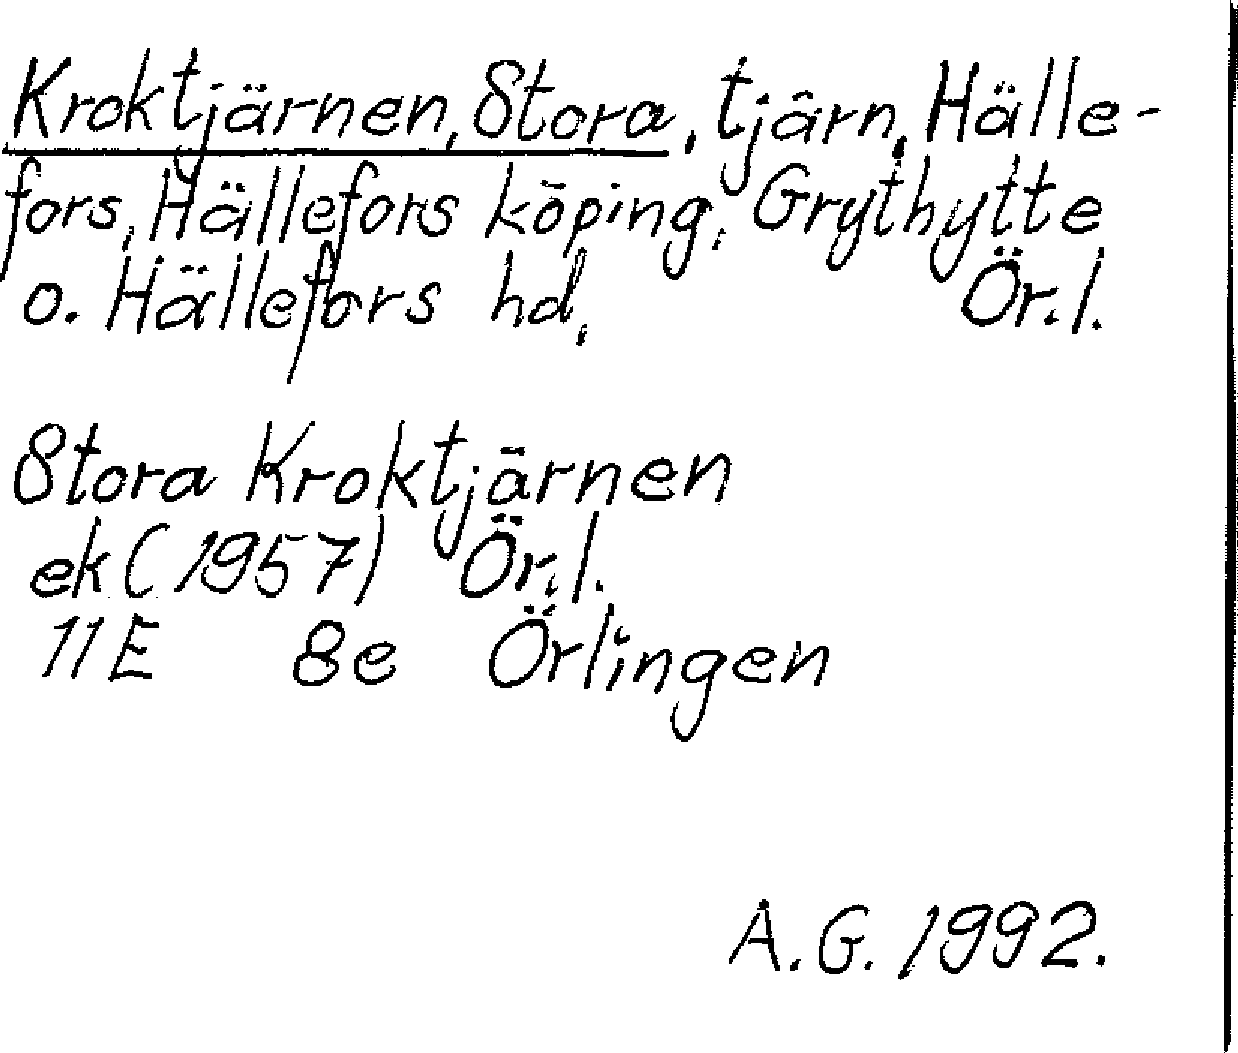 Kroktjärnen, Stora, tjärn, Hälle-
fors, Hällefors köping, Grythytte
o. Hällefors hd, Ör.l.
Stora Kroktjärnen
ek (1957) Ör.l.
11E 8e Örlingen
A.G. 1992.